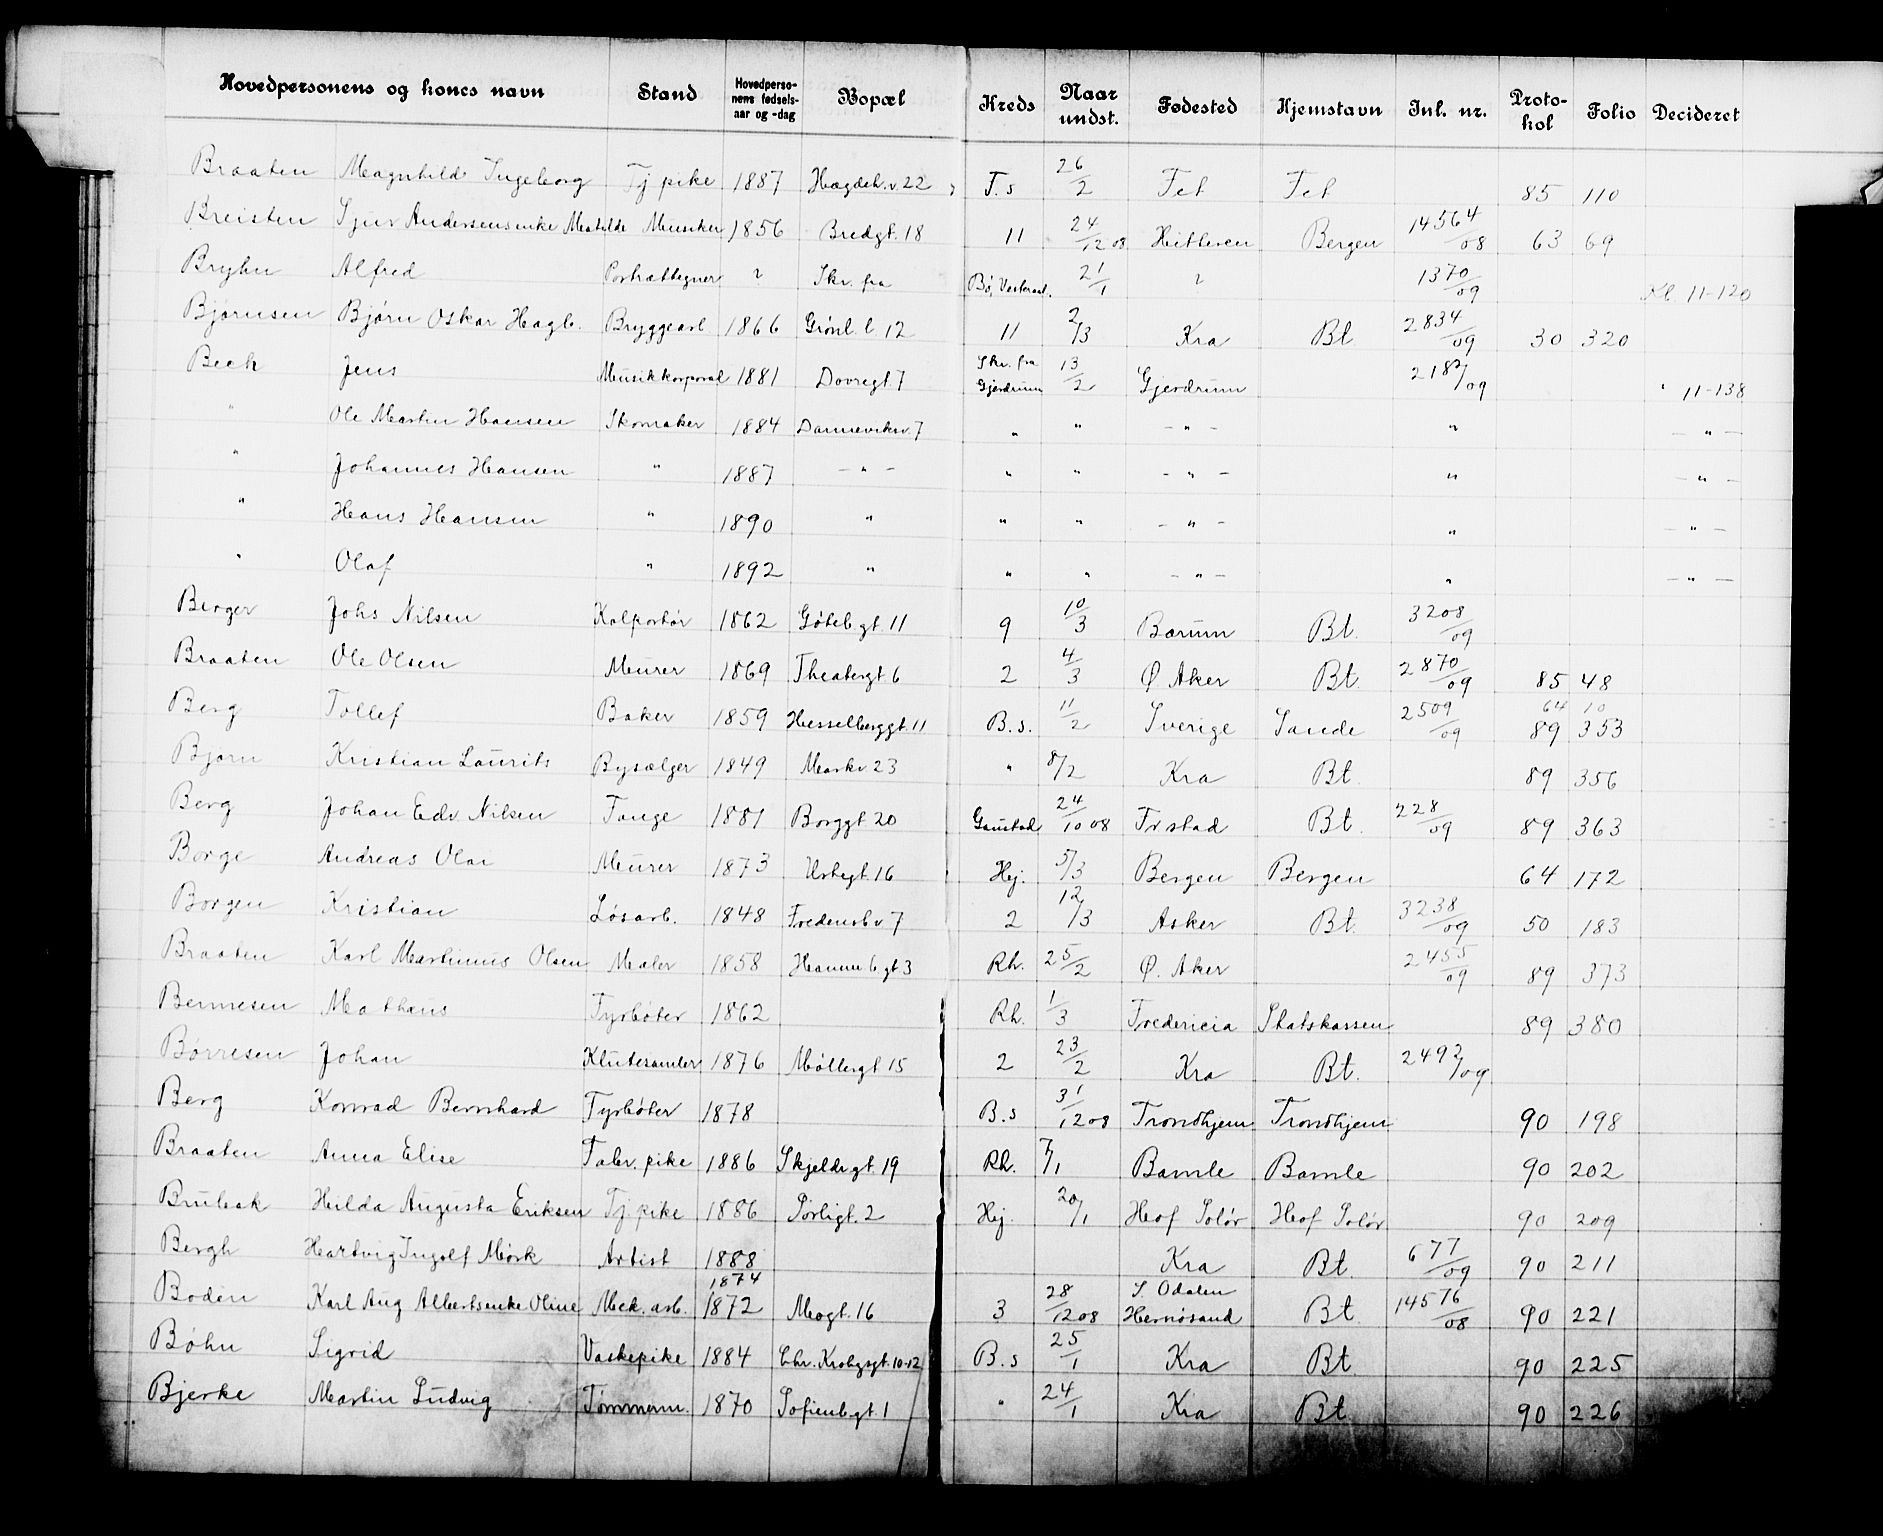 Hovedpersonens og kones navn Stand Hovedpersonens fødselsaar og -dag Bopæl Kreds Naar undst. Fødested Hjemstavn Inl. nr. Protokol Folio Decideret
Braaten Magnhild Ingeborg Tj pike 1887 Hægdeh.v. 22 F.s 26/2 Fet Fet 85 110
Breisten Sjur Andersens enke Matilde Musiker 1856 Bredgt. 18 11 24/12 08 Hitteren Bergen 14564/08 63 69
Bryhn Alfred Portrættegner ? Skr. fra Bø, Vesteraal. 21/1 ? 1370/09 Kl. 11-120
Bjørnsen Bjørn Oskar Hagb. Bryggearb 1866 Grønl. l 12 11 2/3 Kra Bt 2834/09 30 320
Bech Jens Musikkorporal 1881 Dovregt 7 Skr. fra Gjerdrum 13/2 Gjerdrum 2182/09 " 11-138
" Ole Martin Hansen Skomaker 1884 Danneviksv. 7 " " - " - " - " -
" Johannes Hansen " 1887 - " - " " - " - " - " -
" Hans Hansen " 1890 " " " - " - " - " -
" Olaf " 1892 " " " - " - " - " -
Berger Johs Nilsen Kolportør 1862 Göteb.gt. 11 9 10/3 Bærum Bt. 3208/09
Braaten Ole Olsen Murer 1869 Theatergt 6 2 4/3 Ø Aker Bt. 2870/09 85 48
Berg Tollef Baker 1859 Hesselberggt. 11 B.s. 11/2 Sverige Sande 2509/09 64 10 89 353
Bjørn Kristian Laurits Bysælger 1849 Markv. 23 " 8/2 Kra Bt. 89 356
Berg Johan Edv Nilsen Fange 1881 Borggt 20 Gaustad 24/10 08 Frstad Bt. 228/09 89 363
Borge Andreas Olai Murer 1873 Urtegt. 16 Hj. 5/3 Bergen Bergen 64 172
Borgen Kristian Løsarb. 1848 Fredensb v. 7 2 12/3 Asker Bt. 3238/09 50 183
Braaten Karl Martinius Olsen Maler 1858 Hammerb.gt 3 Rh. 25/2 Ø. Aker 2455/09 89 373
Bennesen Mathæus Fyrbøter 1862 Rh. 1/3 Fredericia Statskassen 89 380
Børresen Johan Klutesamler 1876 Møllergt 15 2 23/2 Kra Bt. 2492/09
Berg Konrad Bernhard Fyrbøter 1878 B.s 31/12 08 Trondhjem Trondhjem 90 198
Braaten Anna Elise Fabr. pike 1886 Skjeldr gt. 19 Rh. 7/1 Bamle Bamle 90 202
Brubak Hilda Augusta Eriksen Tj. pike 1886 Sørligt. 2 Hj. 20/1 Hof Solør Hof Solør 90 209
Bergh Hartvig Ingolf Mørk Artist 1888 Kra Bt. 677/09 90 211
Boden Karl Aug Alberts enke Oline Mek. arb. 1874 1872 Møgt. 16 3 28/12 08 S. Odalen Hernøsand Bt. 14576/08 90 221
Bøhn Sigrid Vaskepike 1884 Chr. Krohgsgt. 10-12 B.s 25/1 Kra Bt. 90 225
Bjerke Martin Ludvig Tømmerm. 1870 Sofienb.gt. 1 " 24/1 Kra Bt 90 226